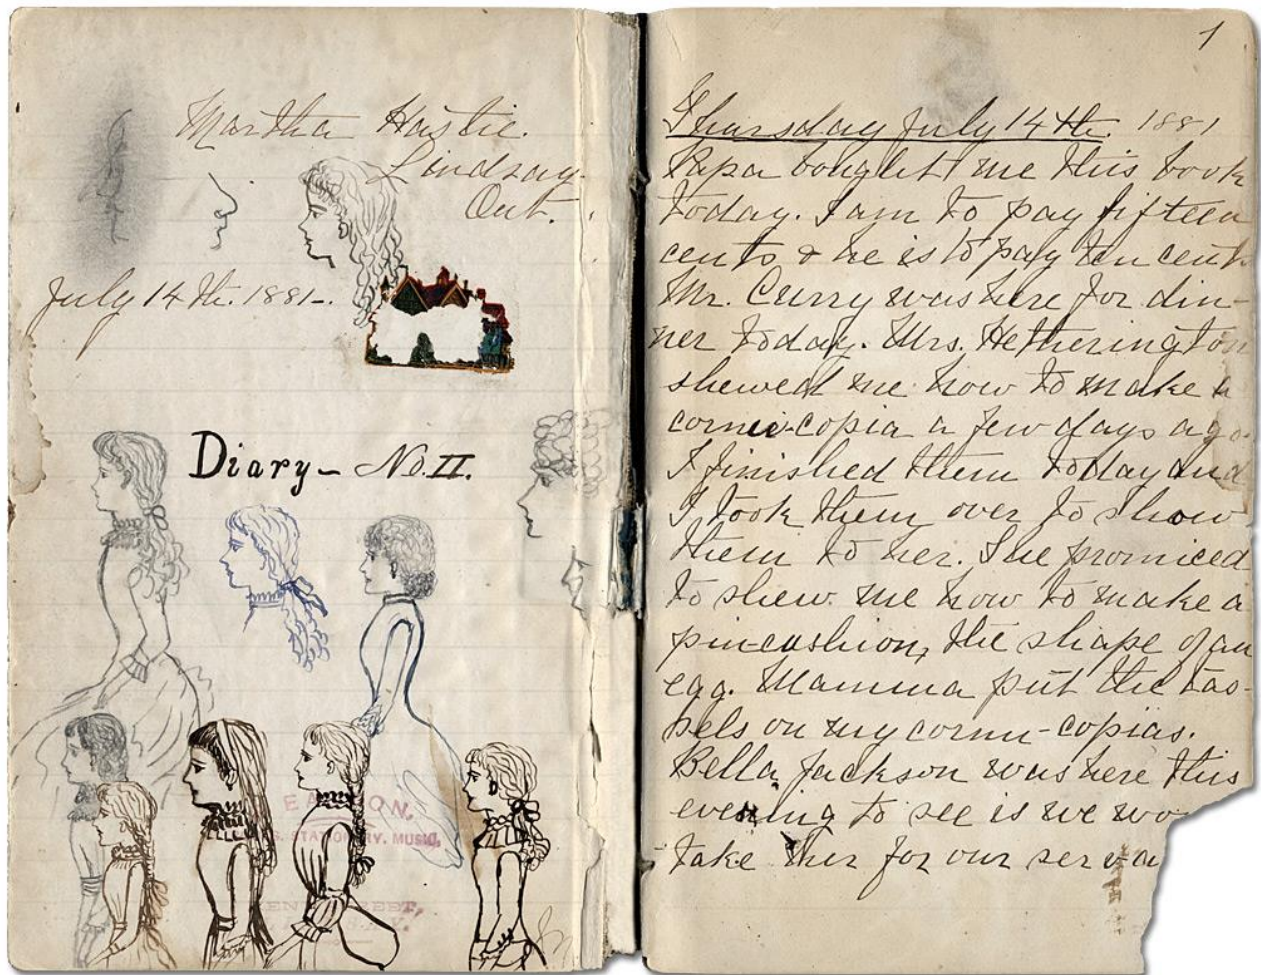 Martha Hastie.
Lindsay.
Ont.
July 14th. 1881.
Diary – No. II.
STATIONERY. MUSIC,
1
Thursday July 14th. 1881
Papa bought me this book
today. I am to pay fifteen
cents & he is to pay ten cents
Mr. Curry was here for din-
ner today. Mrs. Hetherington
shewed me how to make a
cornu-copia a few days ago.
I finished them today and
I took them over to show
them to her. She promiced
to shew me how to make a
pin-cushion, the shape of an
egg. Mamma put the tas-
sels on my cornu-copias.
Bella Jackson was here this
evening to see is we wo
take her for our serva